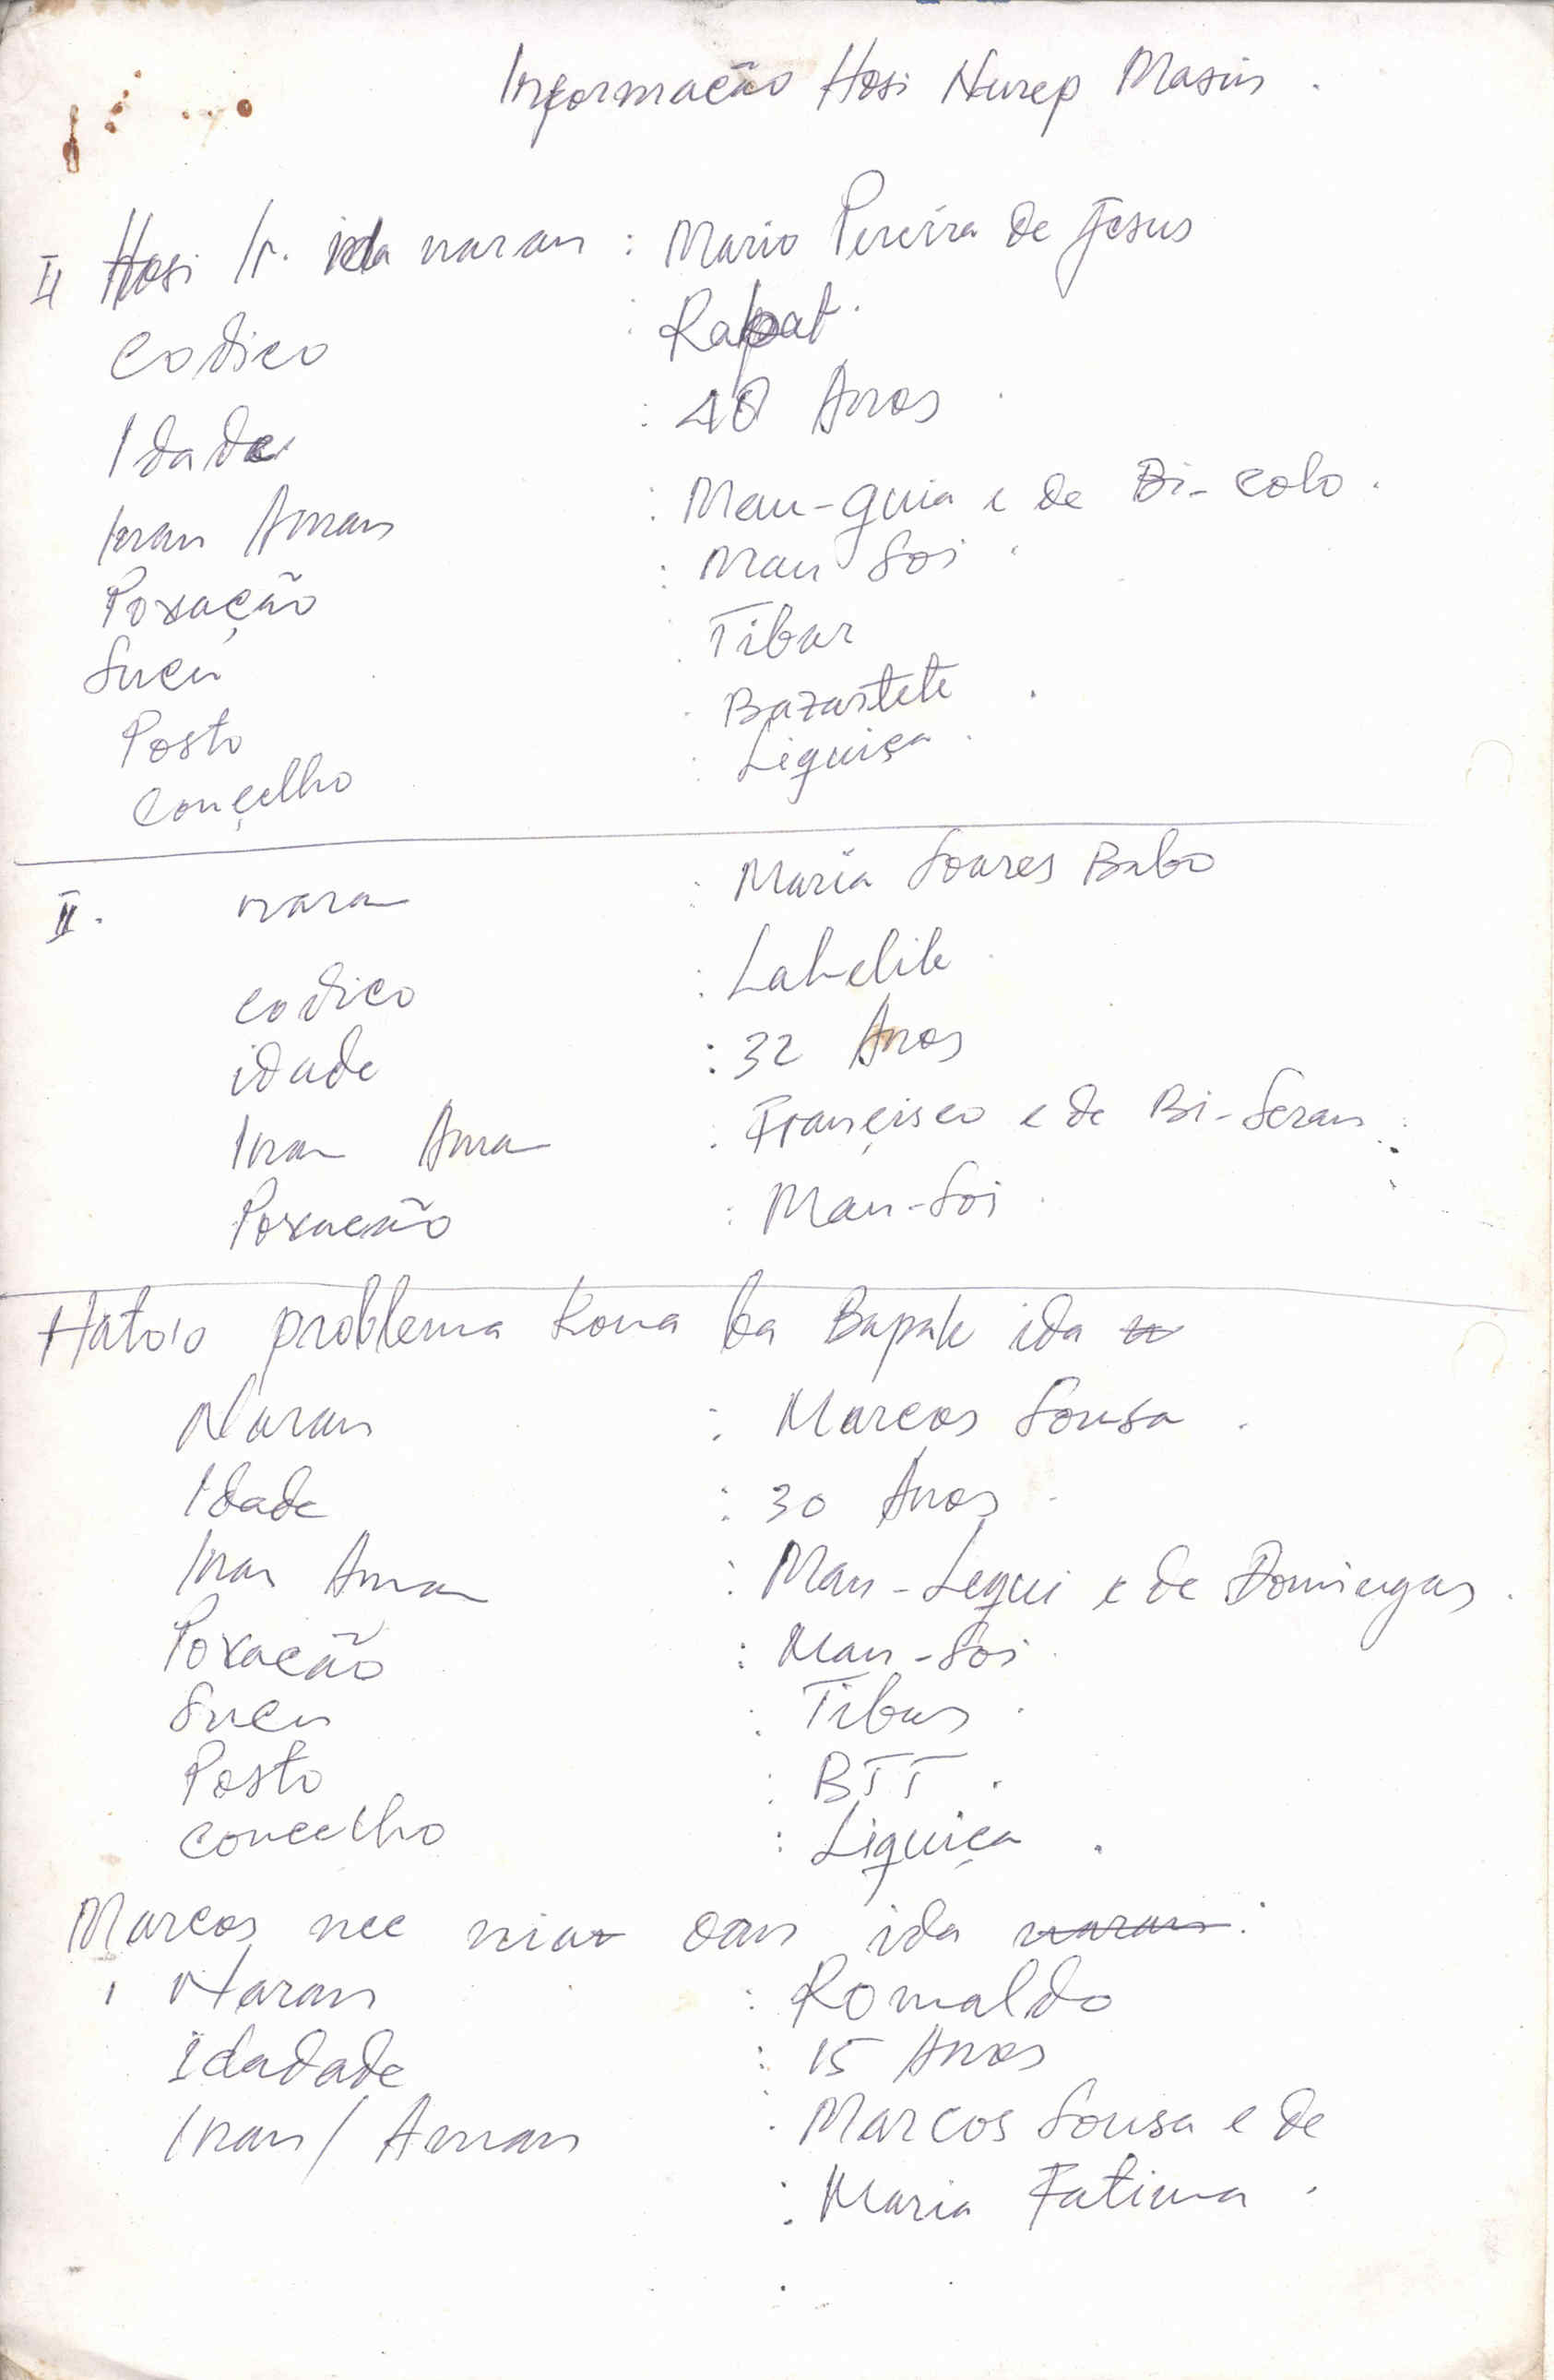 Informação Hosi Nurep Masin.
II Hosi Ir. ida naran : Mario Pereira de Jesus
codico : Rapat.
Idade : 48 Anos.
Inan Aman : Mau-guia e de Bi-colo.
Poxação : Mau Soi.
Sucu : Tibar
Posto : Bazartete.
Conçelho : Liquiça.
II. naran : Maria Soares Babo
codico : Lahelik.
idade : 32 Anos
Inan Aman : Françisco e de Bi-Seran.
Poxacão : Mau-Soi.
Hato'o problema kona ba Bapak ida
Naran : Marcos Sousa.
Idade : 30 Anos.
Inan Aman : Mau-Lequi e de Domingas.
Poxacão : Mau-Soi.
Sucu : Tibar.
Posto : BTT.
concelho : Liquiça.
Marcos nee nia oan ida naran:
Naran : Romaldo
Idadade : 15 Anos
Inan / Aman : Marcos Sousa e de
: Maria Fatima.